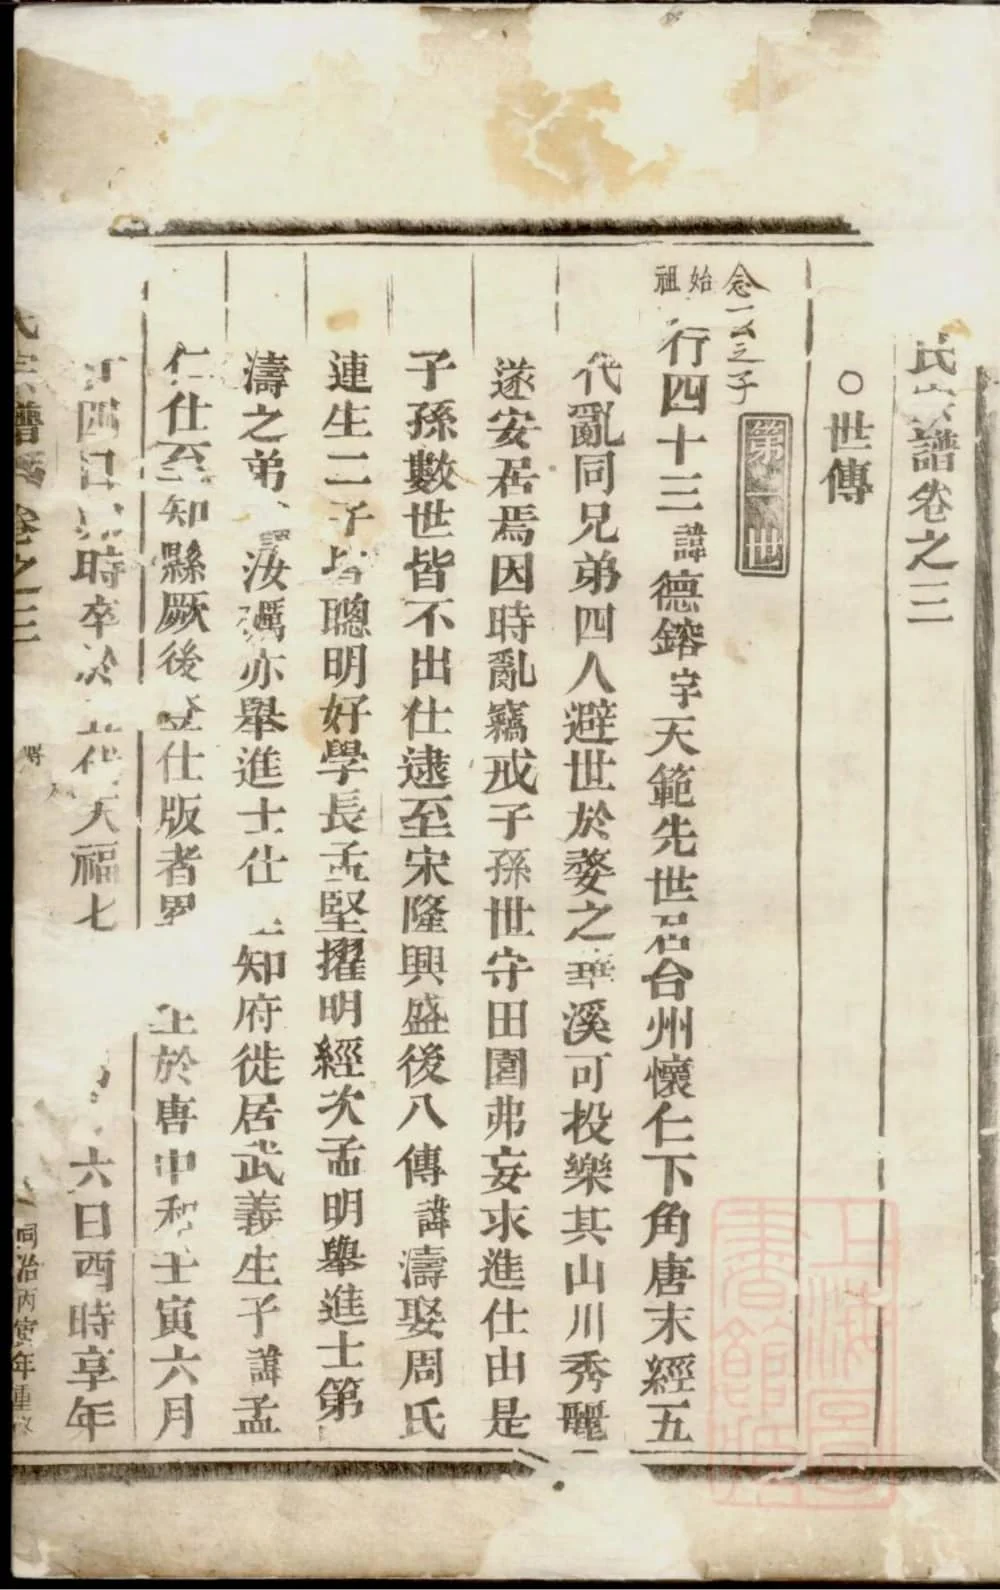 氏宗譜卷之三
○世傳
念一公之子
第一世
始祖
行四十三諱德鎔字天範先世居台州懷仁下角唐末經五
代亂同兄弟四人避世於婺之華溪可投樂其山川秀麗
遂安居焉因時亂竊戒子孫世守田園弗妄求進仕由是
子孫數世皆不出仕逮至宋隆興盛後八傳諱濤娶周氏
連生二子皆聰明好學長孟堅擢明經次孟明舉進士第
濤之弟諱汝礪亦舉進士仕至知府徙居武義生子諱孟
仁仕至知縣厥後登仕版者 生於唐中和壬寅六月
四日 時卒於 天福七 六日酉時享年
氏宗譜 卷之三
同治丙寅年重
上海圖書館藏